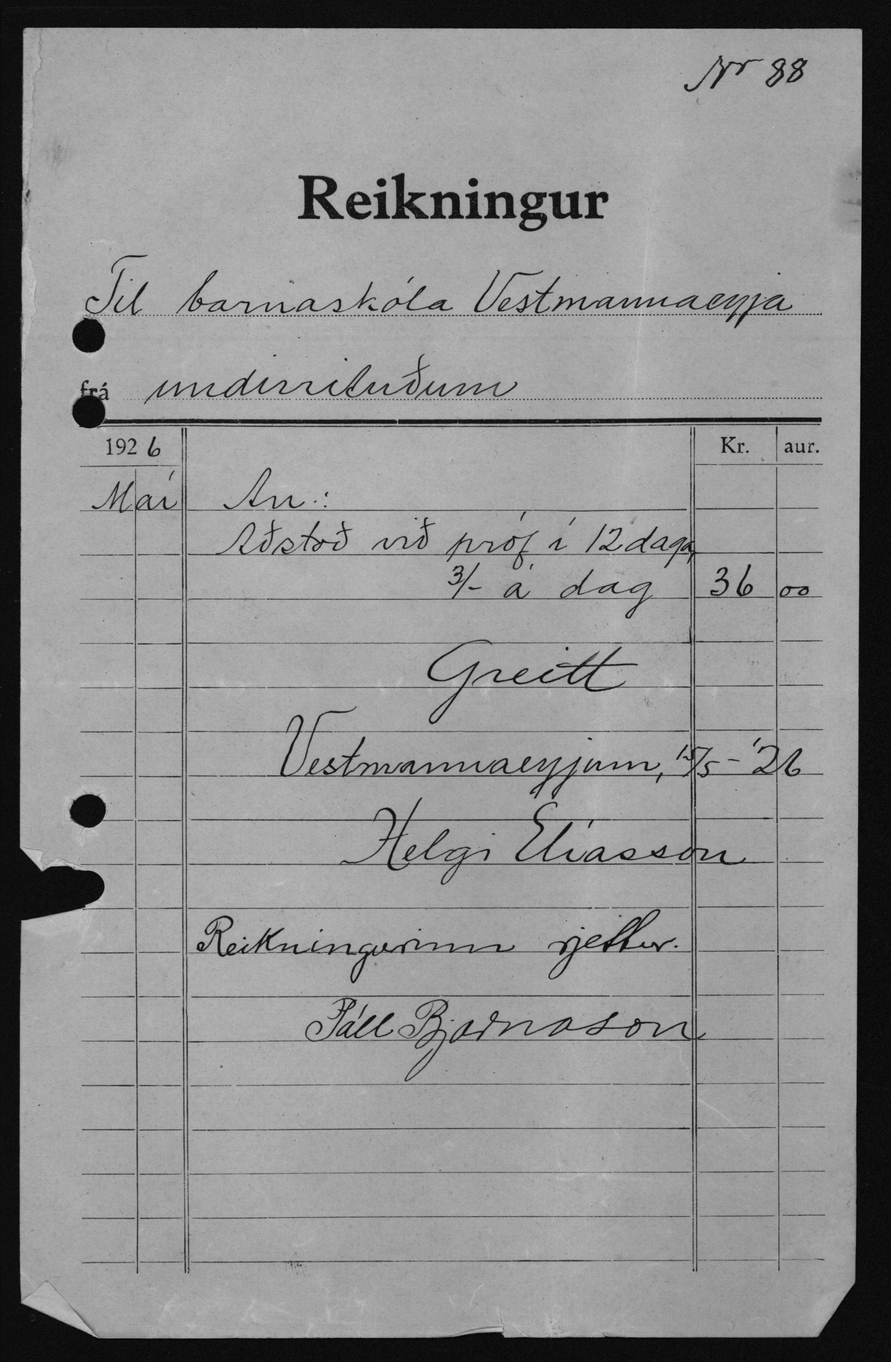 Nr 88
Reikningur
Til barnaskóla Vestmannaeyja
frá undirrituðum
1926 Kr. aur.
Maí An.:
Aðstoð við próf í 12 daga,
3/- á dag 36 00
Greitt
Vestmannaeyjum, 15/5 - '26
Helgi Elíasson
Reikningurinn rjettur.
Páll Bjarnason